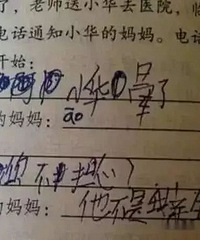 了，老师送小华去医院，临
电话通知小华的妈妈。电话
开始：
小华 晕了
的妈妈：āo
你不 担心
的妈妈：他不是我亲生